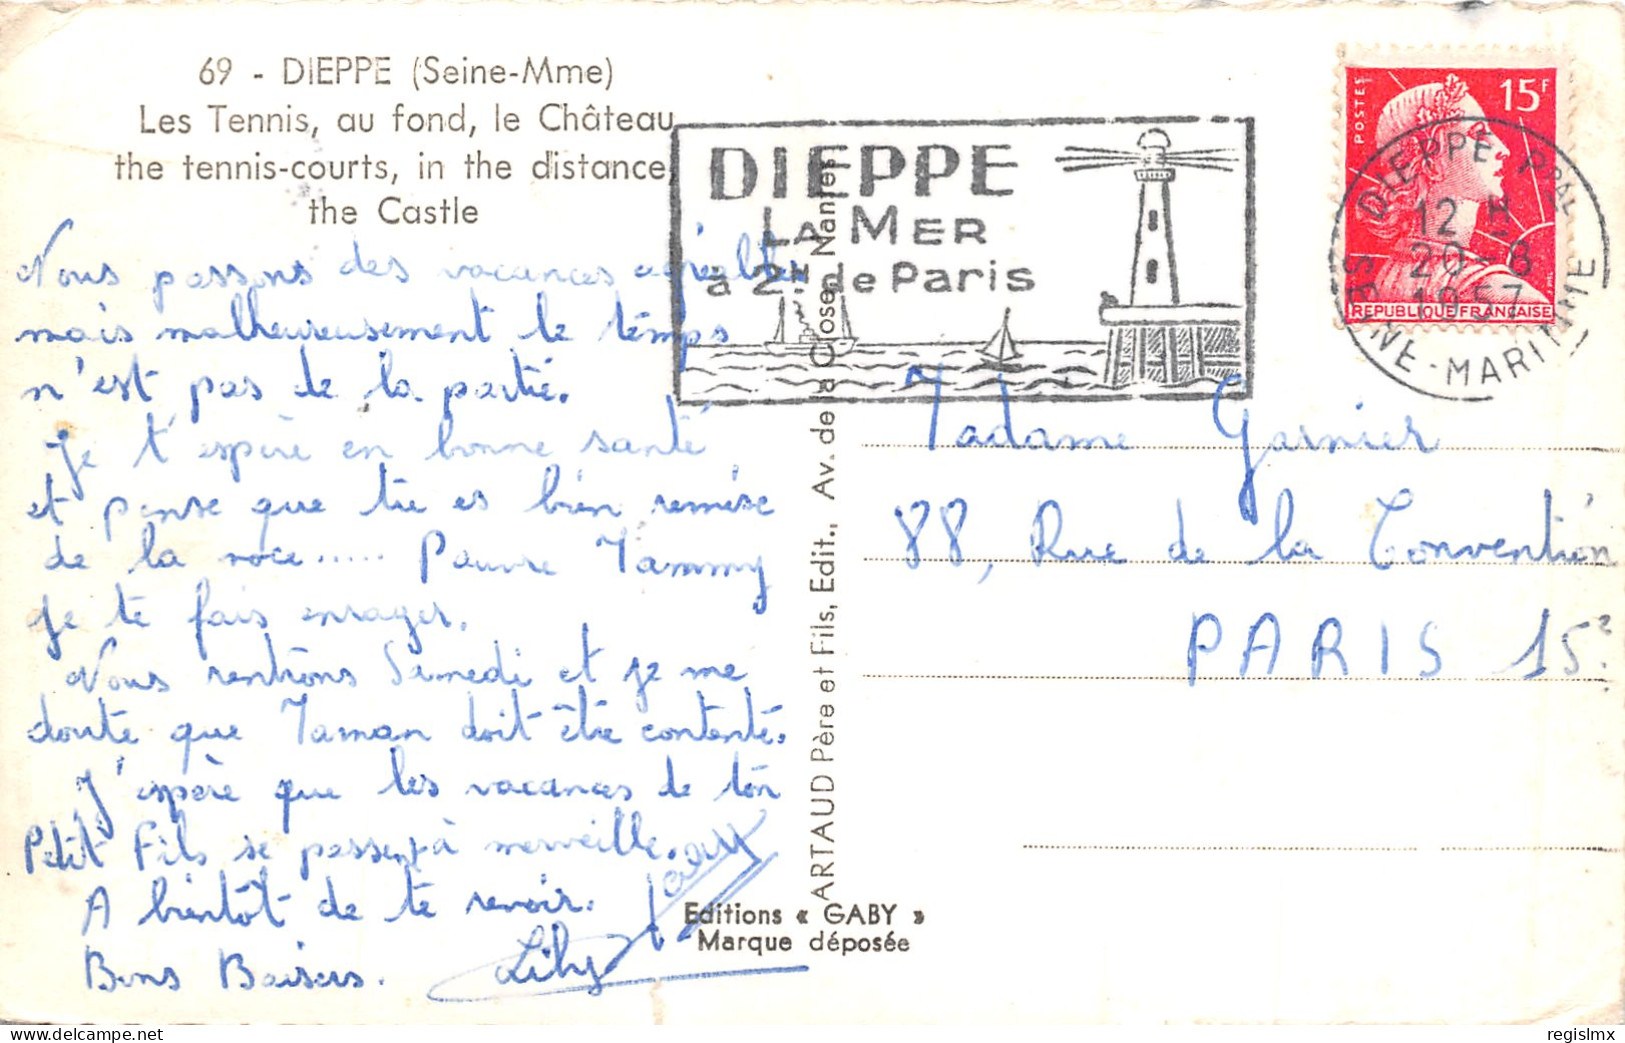 69 - DIEPPE (Seine-Mme)
Les Tennis, au fond, le Château
the tennis-courts, in the distance,
the Castle
Nous passons des vacances agréables
mais malheureusement le temps
n'est pas de la partie.
Je t'espère en bonne santé
et pense que tu es bien remise
de la noce..... Pauvre Mammy
je te fais enrager.
Nous rentrons Samedi et je me
doute que Maman doit être contente.
J'espère que les vacances de ton
Petit Fils se passent à merveille.
A bientôt de te revoir.
Bons Baisers.
Lily
DIEPPE
LA MER
à 2H de Paris
POSTES
15F
REPUBLIQUE FRANÇAISE
DIEPPE PPAL
12 H
20-8
1957
SEINE-MARITIME
Madame Garnier
88, Rue de la Convention
PARIS 15e
ARTAUD Père et Fils, Edit., Av. de la Close, Nantes
Editions « GABY »
Marque déposée
delcampe.net
regislmx